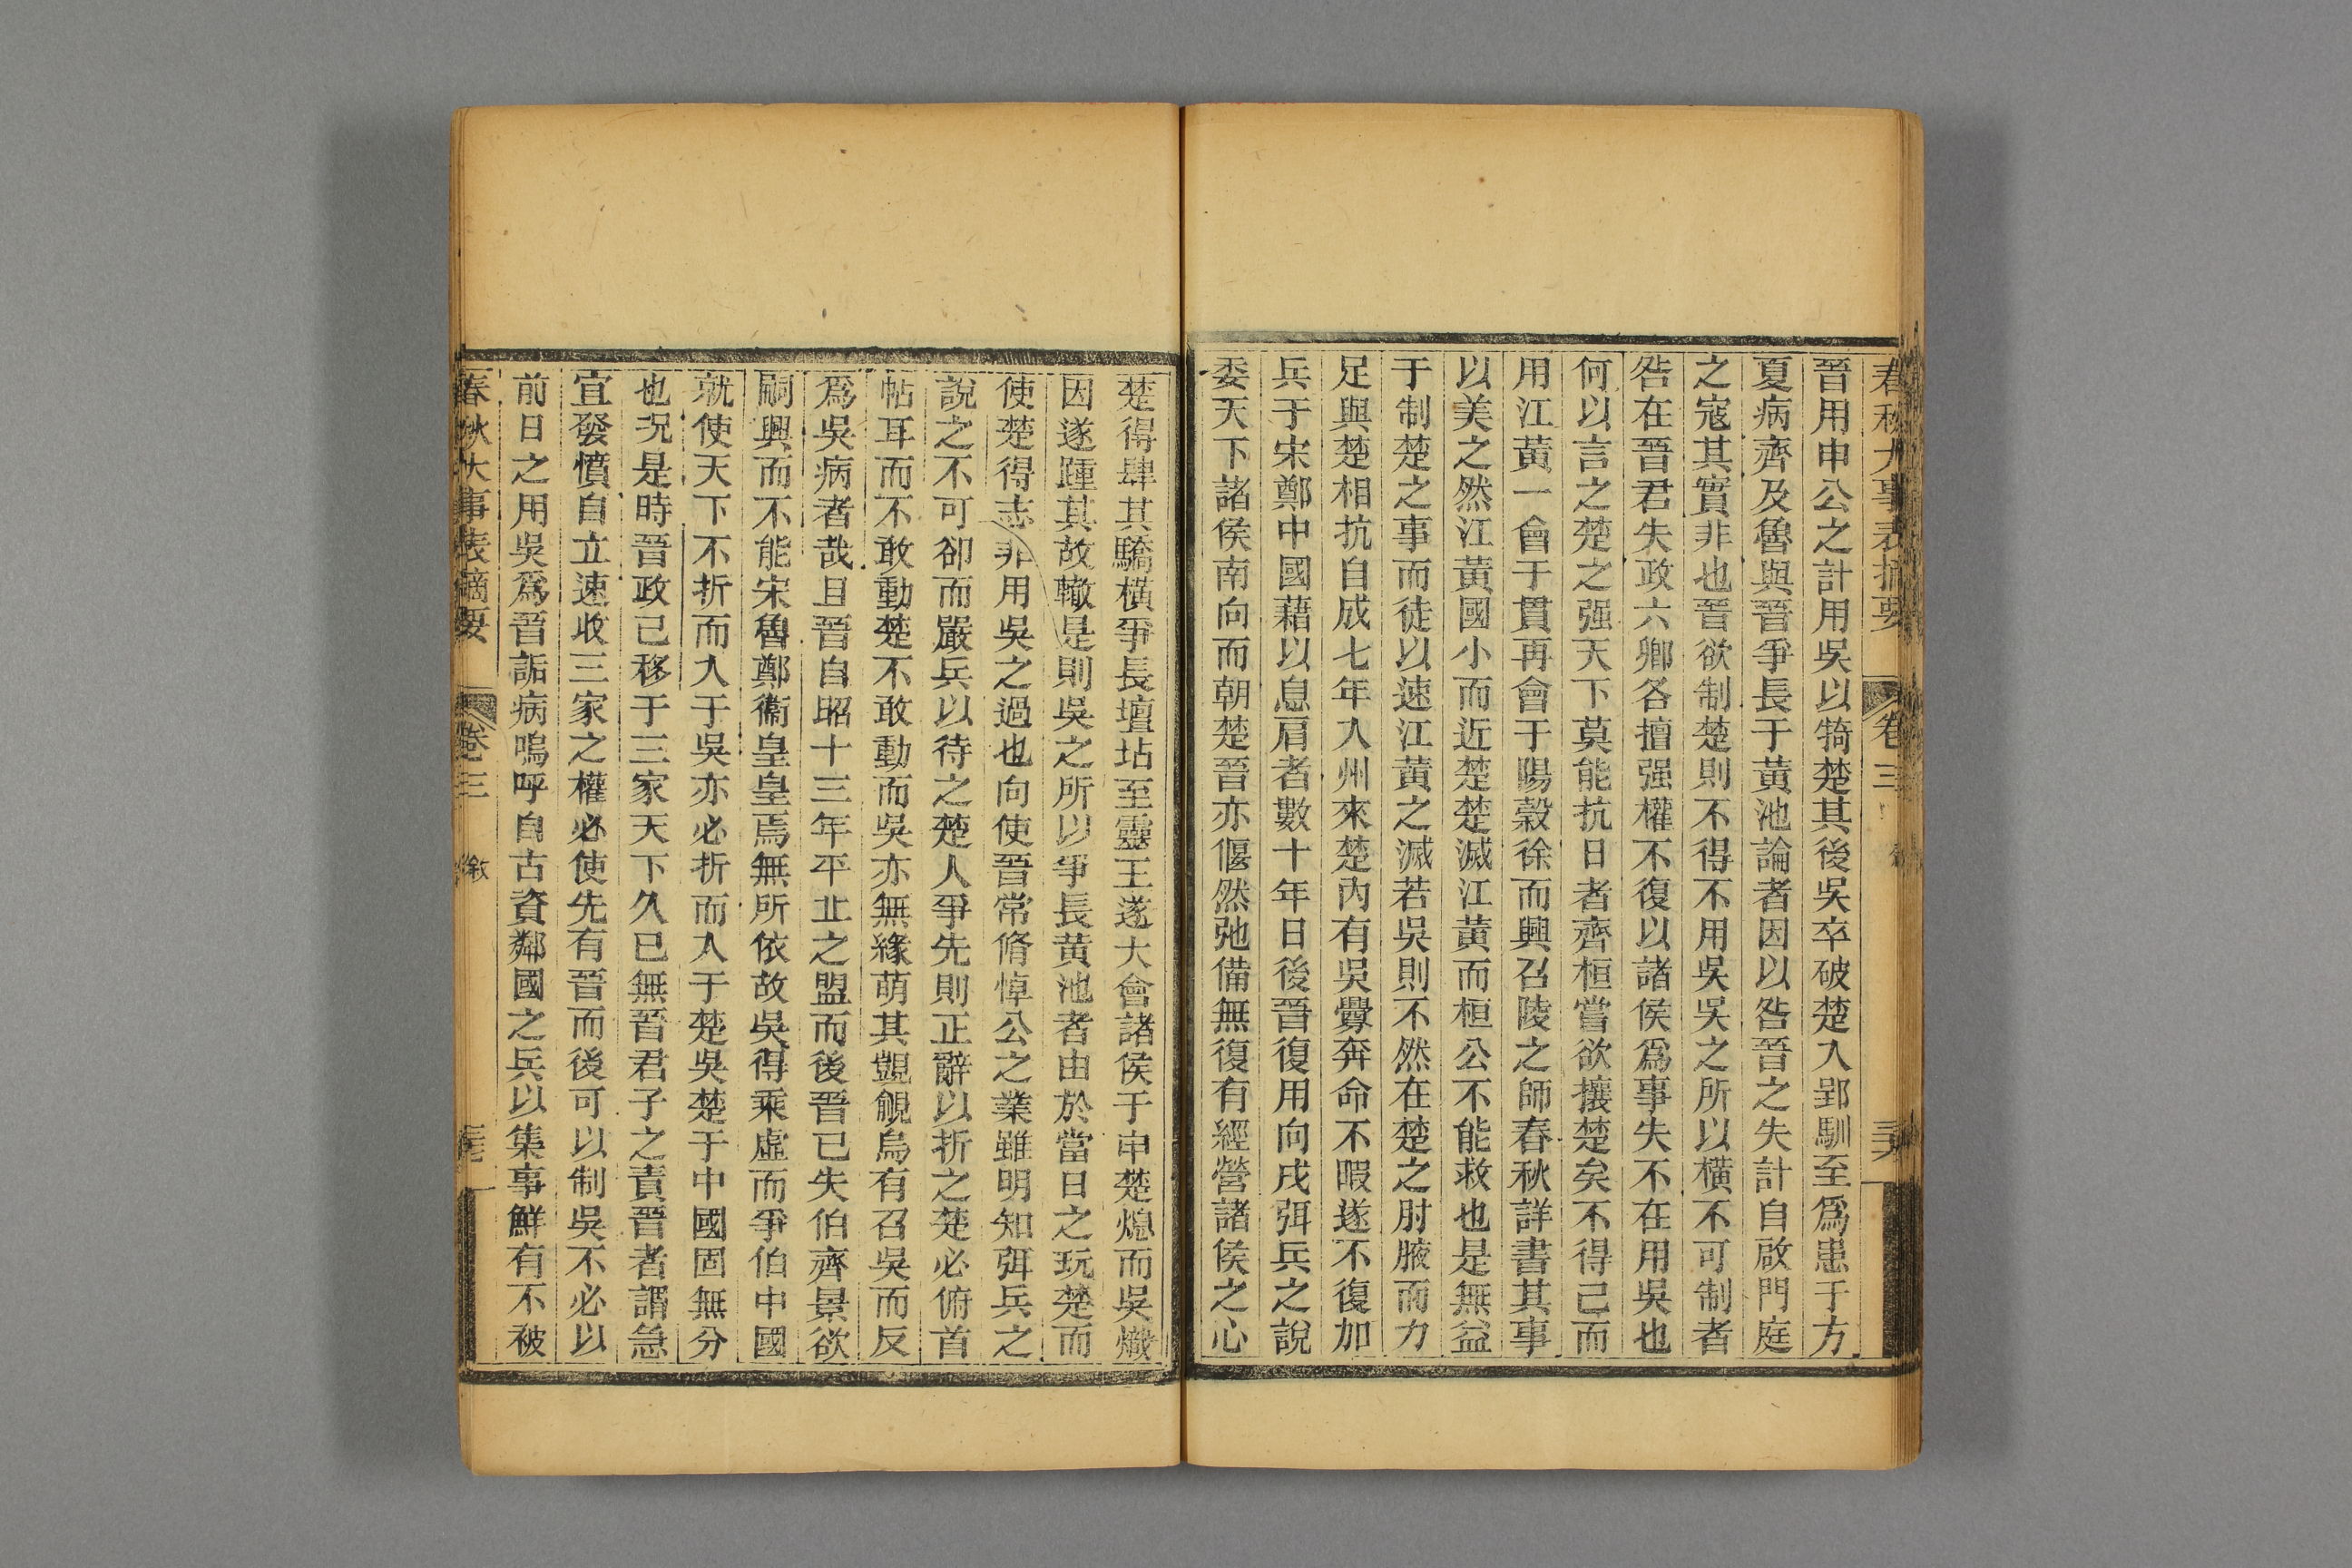 春秋大事表摘要 卷三
晉用申公之計用吳以犄楚其後吳卒破楚入郢馴至爲患于方
夏病齊及魯與晉爭長于黃池論者因以咎晉之失計自啟門庭
之寇其實非也晉欲制楚則不得不用吳吳之所以橫不可制者
咎在晉君失政六卿各擅强權不復以諸侯爲事失不在用吳也
何以言之楚之强天下莫能抗日者齊桓嘗欲攘楚矣不得已而
用江黃一會于貫再會于陽穀徐而興召陵之師春秋詳書其事
以美之然江黃國小而近楚楚滅江黃而桓公不能救也是無益
于制楚之事而徒以速江黃之滅若吳則不然在楚之肘腋而力
足與楚相抗自成七年入州來楚內有吳釁奔命不暇遂不復加
兵于宋鄭中國藉以息肩者數十年日後晉復用向戌弭兵之說
委天下諸侯南向而朝楚晉亦偃然弛備無復有經營諸侯之心
楚得肆其驕橫爭長壇坫至靈王遂大會諸侯于申楚熄而吳熾
因遂踵其故轍是則吳之所以爭長黃池者由於當日之玩楚而
使楚得志非用吳之過也向使晉常脩悼公之業雖明知弭兵之
說之不可卻而嚴兵以待之楚人爭先則正辭以折之楚必俯首
帖耳而不敢動楚不敢動而吳亦無緣萌其覬覦烏有召吳而反
爲吳病者哉且晉自昭十三年平丘之盟而後晉已失伯齊景欲
嗣興而不能宋魯鄭衞皇皇焉無所依故吳得乘虛而爭伯中國
就使天下不折而入于吳亦必折而入于楚吳楚于中國固無分
也況是時晉政已移于三家天下久已無晉君子之責晉者謂急
宜發憤自立速收三家之權必使先有晉而後可以制吳不必以
前日之用吳爲晉詬病嗚呼自古資鄰國之兵以集事鮮有不被
春秋大事表摘要 卷三 敘